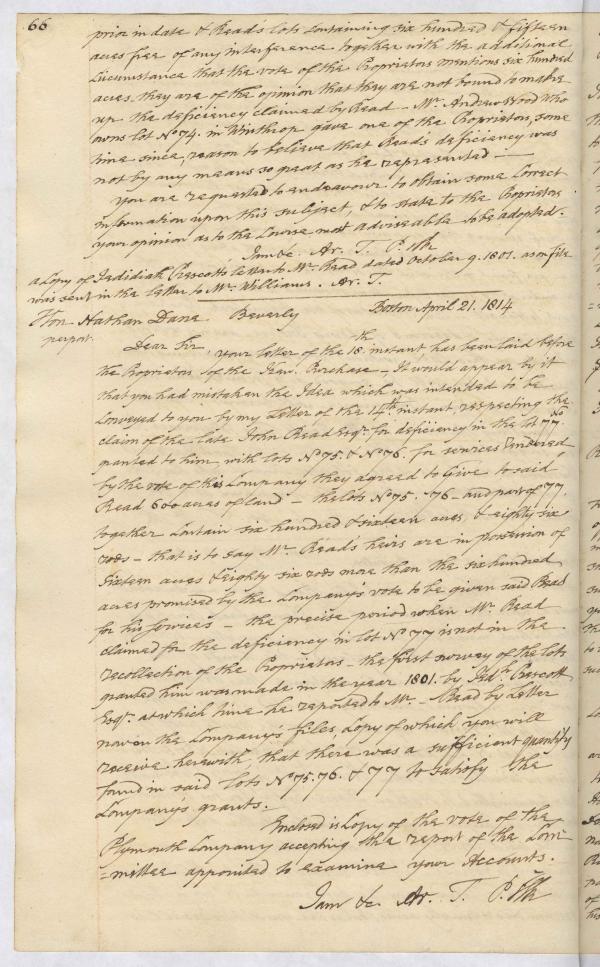 66
prior in date & Reads lots Containing six hundred & fifteen
acres free of any interference together with the additional
Circumstance that the vote of the Proprietors mentions six hundred
acres, they are of the opinion that they are not bound to make
up the deficiency claimed by Read – Mr. Andrew Wood who
owns lot No. 74. in Winthrop gave one of the Proprietors, some
time since, reason to believe that Read's deficiency was
not by any means so great as he represented. –
You are requested to endeavour to obtain some Correct
information upon this subject, & to state to the Proprietors
your opinion as to the Course most adviseable to be adopted.
I am &c. Ar. T. P. Clk
a Copy of Jedidiah Prescott's letter to Mr. Read dated October 9. 1801. as on file
was sent in the letter to Mr. Williams. Ar. T.
Hon. Nathan Dane Beverly Boston April 21. 1814
per post.
Dear Sir, your letter of the 18th instant has been laid before
the Proprietors of the Ken. Purchase – It would appear by it
that you had mistaken the Idea which was intended to be
Conveyed to you by my Letter of the 14th instant, respecting the
claim of the late John Read Esqr. for deficiency in the lot No 77.
granted to him, with lots No 75. & No 76. for services rendered
by the vote of this Company they agreed to Give to said
Read 600 acres of land – the lots No 75. & 76 – and part of 77,
together Contain six hundred & sixteen acres, & eighty six
rods – that is to say Mr. Read's heirs are in possession of
sixteen acres & eighty six rods more than the six hundred
acres promised by the Company's vote to be given said Read
for his services – the precise period when Mr. Read
claimed for the deficiency in lot No 77 is not in the
recollection of the Proprietors – the first survey of the lots
granted him was made in the year 1801. by Jedh. Prescott
Esqr. at which time he reported to Mr. – Read by Letter
now on the Company's files, Copy of which you will
receive herewith, that there was a sufficient quantity
found in said lots No 75. 76. & 77 to satisfy the
Company's grants.
Enclosed is Copy of the vote of the
Plymouth Company accepting the report of the Com-
=mittee appointed to examine your Accounts.
I am &c. Ar. T. P. Clk